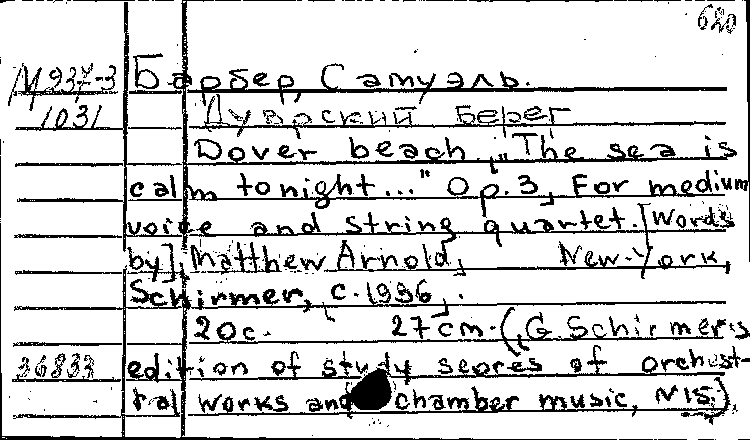 620
М 937-3 Барбер, Самуэль.
1031 Дуврский берег
Dover beach, "The sea is
calm tonight..." Op. 3, For medium
voice and string quartet. [Words
by], Matthew Arnold, New-York,
Schirmer, c. 1936,.
20c. 27cm. (G. Schirmer's
36833 edition of study scores of orchest-
ral works and chamber music, N 15.)